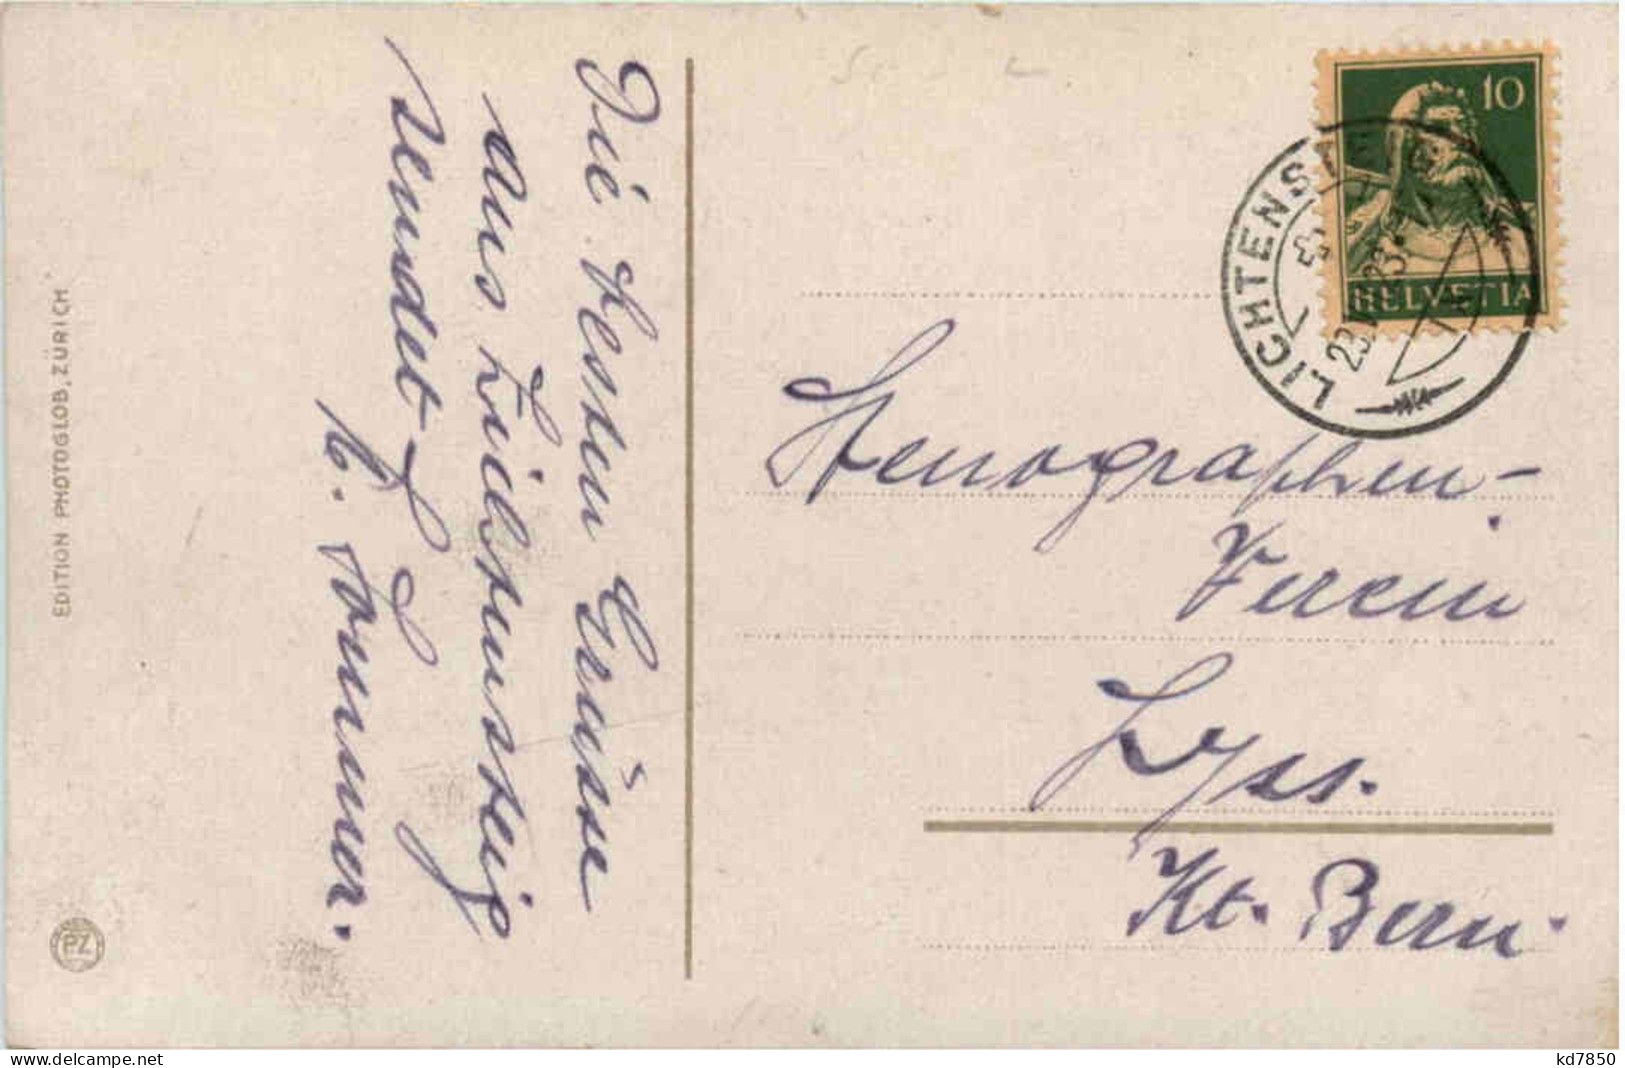 Die besten Grüsse
aus Lichtensteig
sendet
H. Sommer.
EDITION PHOTOGLOB, ZÜRICH
PZ
10
HELVETIA
LICHTENSTEIG
Stenographen-
Verein
Lyss.
Kt. Bern.
www.delcampe.net
kd7850